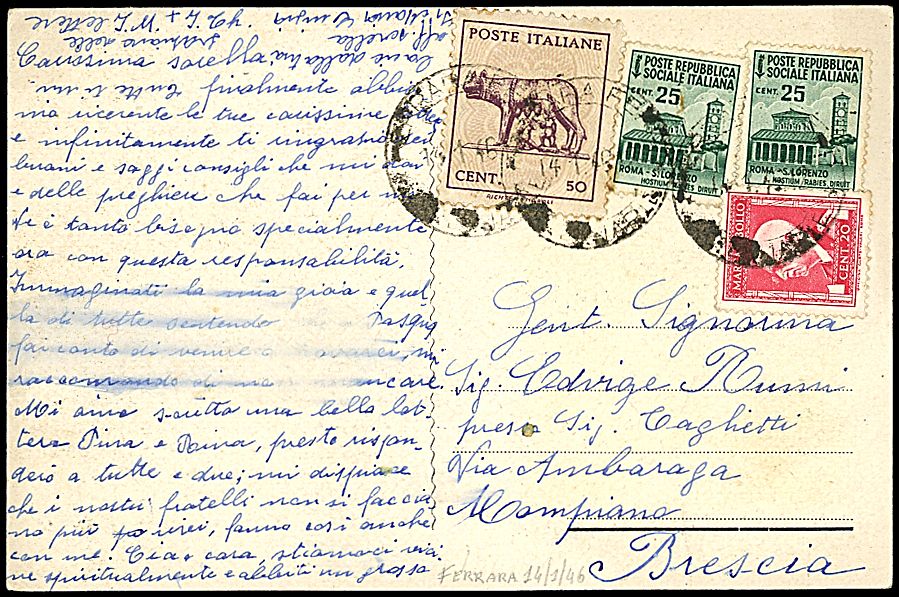 Carissima sorella
finalmente abbia
mo ricevuto le tue carissime
e infinitamente ti ringrazio dei
buoni e saggi consigli che mi dai
e delle preghiere che fai per me
te è tanto bisogno specialmente
ora con questa responsabilità.
Immaginati la mia gioia e quel
la di tutte sentendo Pasqua
fai conto di venire a trovarci, mi
raccomando di non mancare.
Mi anno scritto una bella let-
tera Pina e Rina, presto rispon-
derò a tutte e due; mi dispiace
che i nostri fratelli non si faccia
no più vivi, fanno così anche
con me. Ciao cara, stiamoci vici
ne spiritualmente e abbiti un grosso
bacio dalla tua
aff. sorella
W. I. lettere
POSTE ITALIANE
CENT. 50
POSTE REPUBBLICA
SOCIALE ITALIANA
CENT. 25
ROMA - S. LORENZO
HOSTIUM RABIES DIRUIT
POSTE REPUBBLICA
SOCIALE ITALIANA
CENT. 25
ROMA - S. LORENZO
HOSTIUM RABIES DIRUIT
CENT. 20
14.1.46
Gent. Signorina
Sig. Edvige Rumi
presso Sig. Taghetti
Via Ambaraga
Mompiano
Brescia
FERRARA 14/1/46